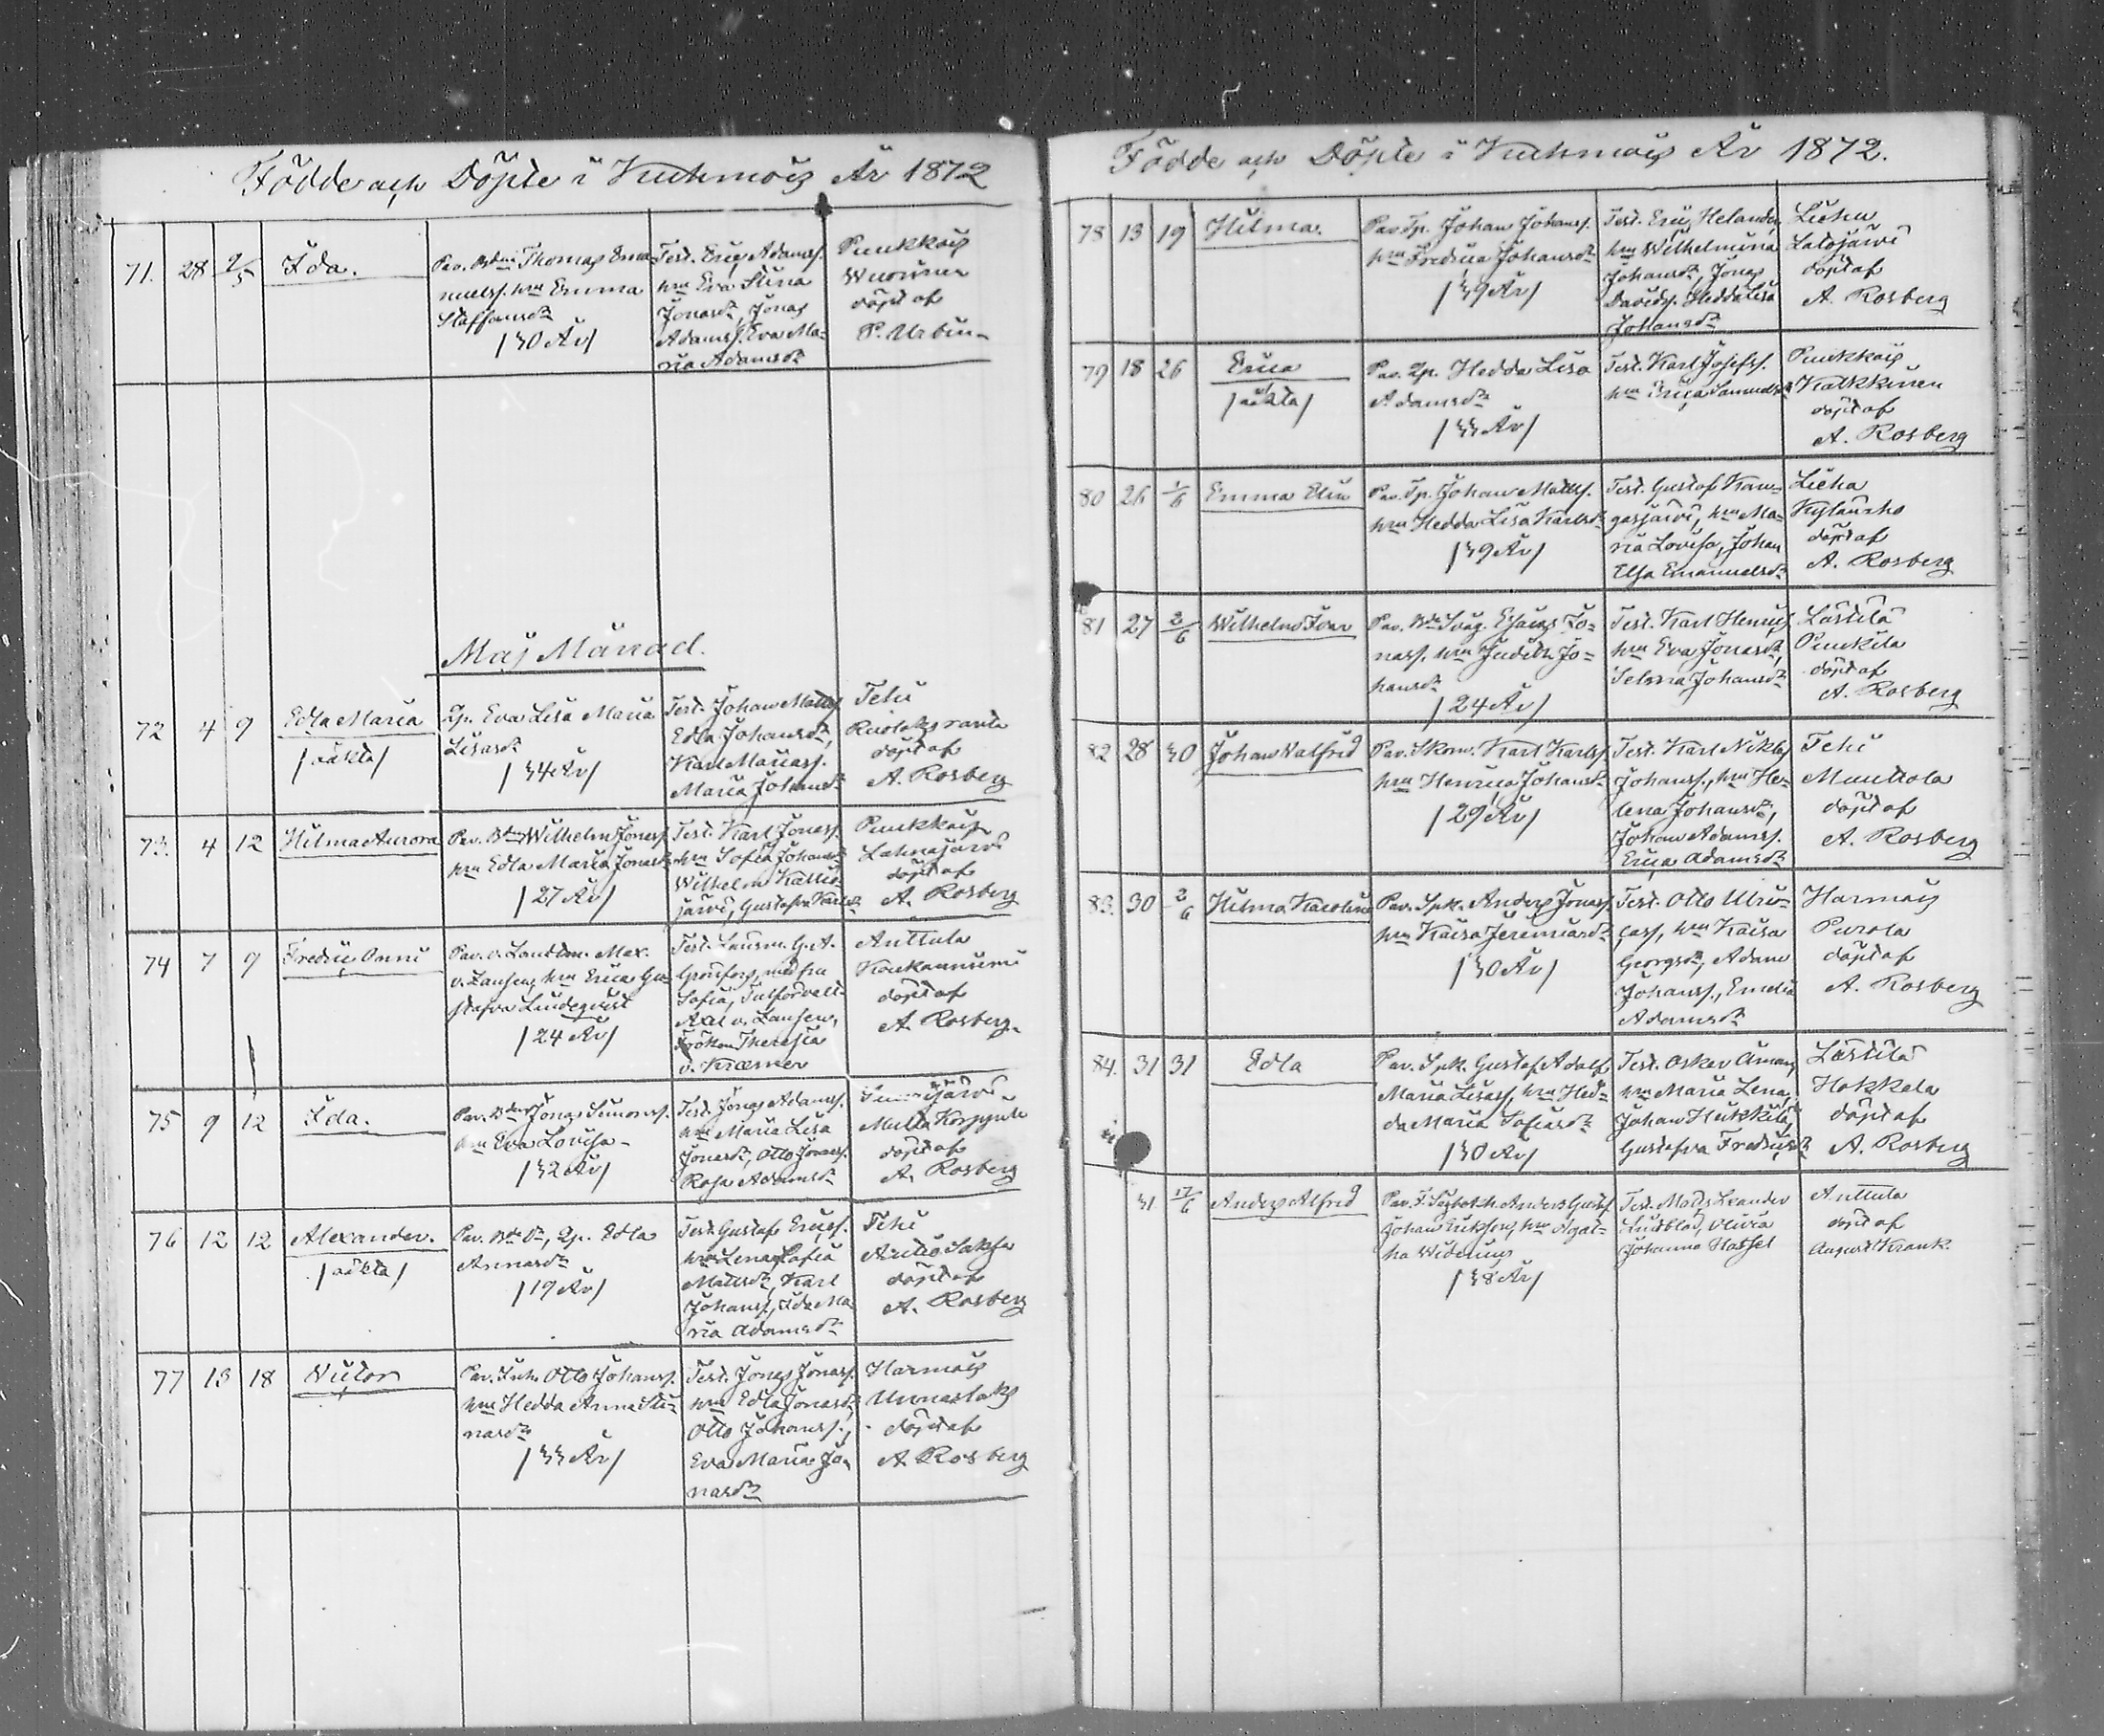 Födde och Döpte i Kuhmois År 1872
71. 28 2/5 Ida.
Pav. Bdm Thomas Ema
nuelss. hm Emma
Staffansdr
/30 År/
Test. Eric Adamss.
hm Eva Stina
Jonasdr, Jonas
Adamss. Eva Ma-
ria Adamsdr
Puukkois
Wuorinen
döpt af
P. Urbin
Maj Månad.
72 4 9 Edla Maria
/oäkta/
Qp. Eva Lisa Maria
Lisasdr
/34 År/
Test. Johan Matts.
Edla Johansdr,
Karl Mariass.
Maria Johansdr
Tehi
Ruolaksranta
döpt af
A. Rosberg
73. 4 12 Hilma Aurora
Pav. Bdm Wilhelm Jonass.
hm Edla Maria Jonasdr
/27 År/
Test. Karl Jonass.
hm Sofia Johansdr
Wilhelm Kallio
järvi, Gustafva Karlsdr
Puukkois
Lahnajärvi
döpt af
A. Rosberg
74 7 9 Fredric Onni
Pav. v. Landtm. Max.
v. Lansen, hm Erica Gu-
stafva Lindeqvist
/24 År/
Test. Länsm. G. A.
Grönfors, med fru
Sofia, Tulförvalt.
Axel v. Lansen,
Fröken Theresia
v. Kræmer
Anttula
Koukanniemi
döpt af
A. Rosberg.
75 9 12 Ida.
Pav. Bdm Jonas Simonss.
hm Eva Lovisa
/32 År/
Test. Jonas Adamss.
hm Maria Lisa
Jonasdr, Otto Jonass.
Rosa Adamsdr
döpt af
A. Rosberg
76 12 12 Alexander.
/oäkta/
Pav. Bdr Dr, Qp. Edla
Annasdr
/19 År/
Test. Gustaf Ericss.
hm Lena Sofia
Mattsdr, Karl
Johanss., Ida Ma
ria Adamsdr
Tehi
Anttis Saksa
döpt af
A. Rosberg
77 13 18 Victor
Pav. Inh. Otto Johanss.
hm Hedda Anna Sti-
nasdr
/33 År/
Test. Jonas Jonass.
hm Edla Jonasdr,
Otto Johanss.,
Eva Maria Jo-
nasdr
Harmois
Unnaslaks
döpt af
A. Rosberg
Födde och Döpte i Kuhmois År 1872.
78 13 19 Hilma.
Pav. Tp. Johan Johanss.
hm Fredrica Johansdr
/39 År/
Test. Eric Helander,
hm Wilhelmina
Johansdr, Jonas
Davids. Hedda Lisa
Johansdr
Lieha
Lalojärvi
döpt af
A. Rosberg
79 18 26 Erica
/oäkta/
Pav. Qp. Hedda Lisa
Adamsdr
/33 År/
Test. Karl Josefss.
hm Erica Samuelsdr
Puukkois
Kalkkinen
döpt af
A. Rosberg
80 26 1/6 Emma Elin
Pav. Tp. Johan Mattss.
hm Hedda Lisa Karlsdr
/39 År/
Test. Gustaf Kan-
gasjärvi, hm Ma-
ria Lovisa, Johan
Elsa Emanuelsdr
Lieha
Kylänsho
döpt af
A. Rosberg
81 27 2/6 Wilhelm Ivar
Pav. Bde Svåg. Esaias Jo-
nass. hm Judith Jo-
hansdr
/24 År/
Test. Karl Henric
hm Eva Jonasdr,
Selma Johansdr
Lästilä
Puukila
döpt af
A. Rosberg
82 28 30 Johan Valfrid
Pav. Skom. Karl Karlss.
hm Henrica Johansdr
/29 År/
Test. Karl Niklas
Johanss., hm He-
lena Johansdr,
Johan Adamss.
Erica Adamsdr
Tehi
Mauttola
döpt af
A. Rosberg
83. 30 2/6 Hilma Karolina
Pav. Spk. Anders Jonass.
hm Kaisa Jeremiasdr
/30 År/
Test. Otto Ulric-
cass, hm Kaisa
Georgsdr, Adam
Johanss., Emelia
Adamsdr
Harmois
Purola
döpt af
A. Rosberg
84. 31 31 Edla
Pav. Spk. Gustaf Adolf
Maria Lisass, hm Hed-
da Maria Sofiasdr
/30 År/
Test. Oskar Aman,
hm Maria Lena,
Johan Heikkilä,
Gustafva Fredricsdr
Lästilä
Hokkala
döpt af
A. Rosberg
31 17/6 Anders Alfred
Pav. Anders Gustaf
Johan Eriksson, hm Agat-
ha Widenius
/38 År/
Test. Mats Leander
Lindblad, Olivia
Johanna Hatsel
Anttula
döpt af
August Krank.